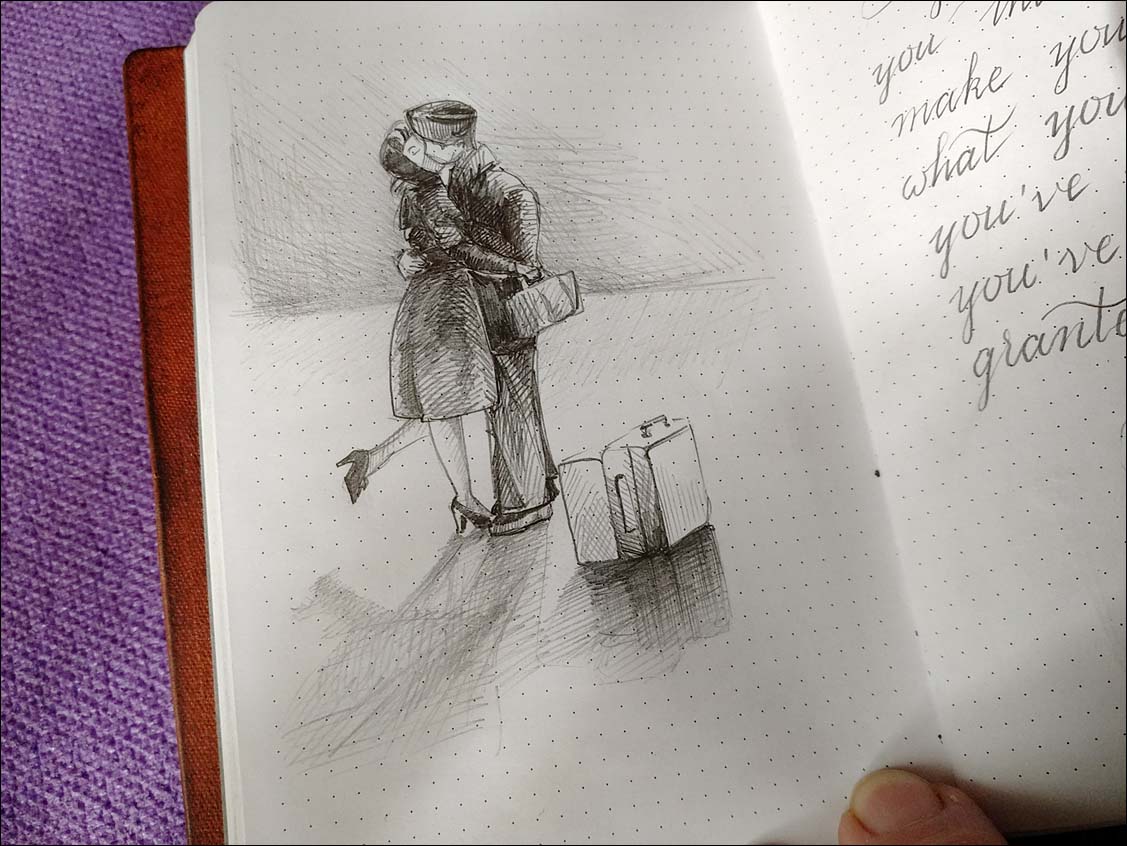 you
make you
what you
you've
you've